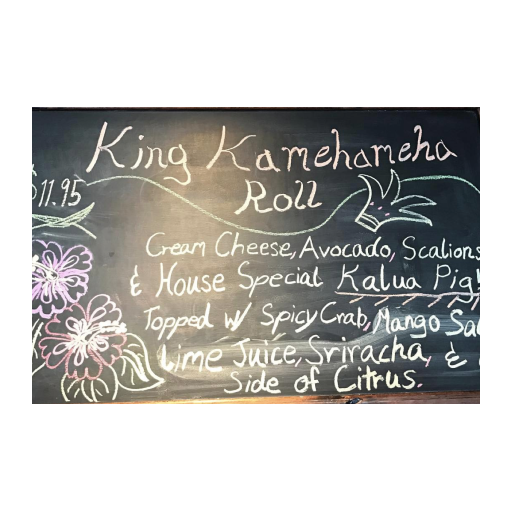 King Kamehameha
Roll
$11.95
Cream Cheese, Avocado, Scalions
& House Special Kalua Pig!
Topped w/ Spicy Crab, Mango
Lime Juice, Sriracha, &
Side of Citrus.